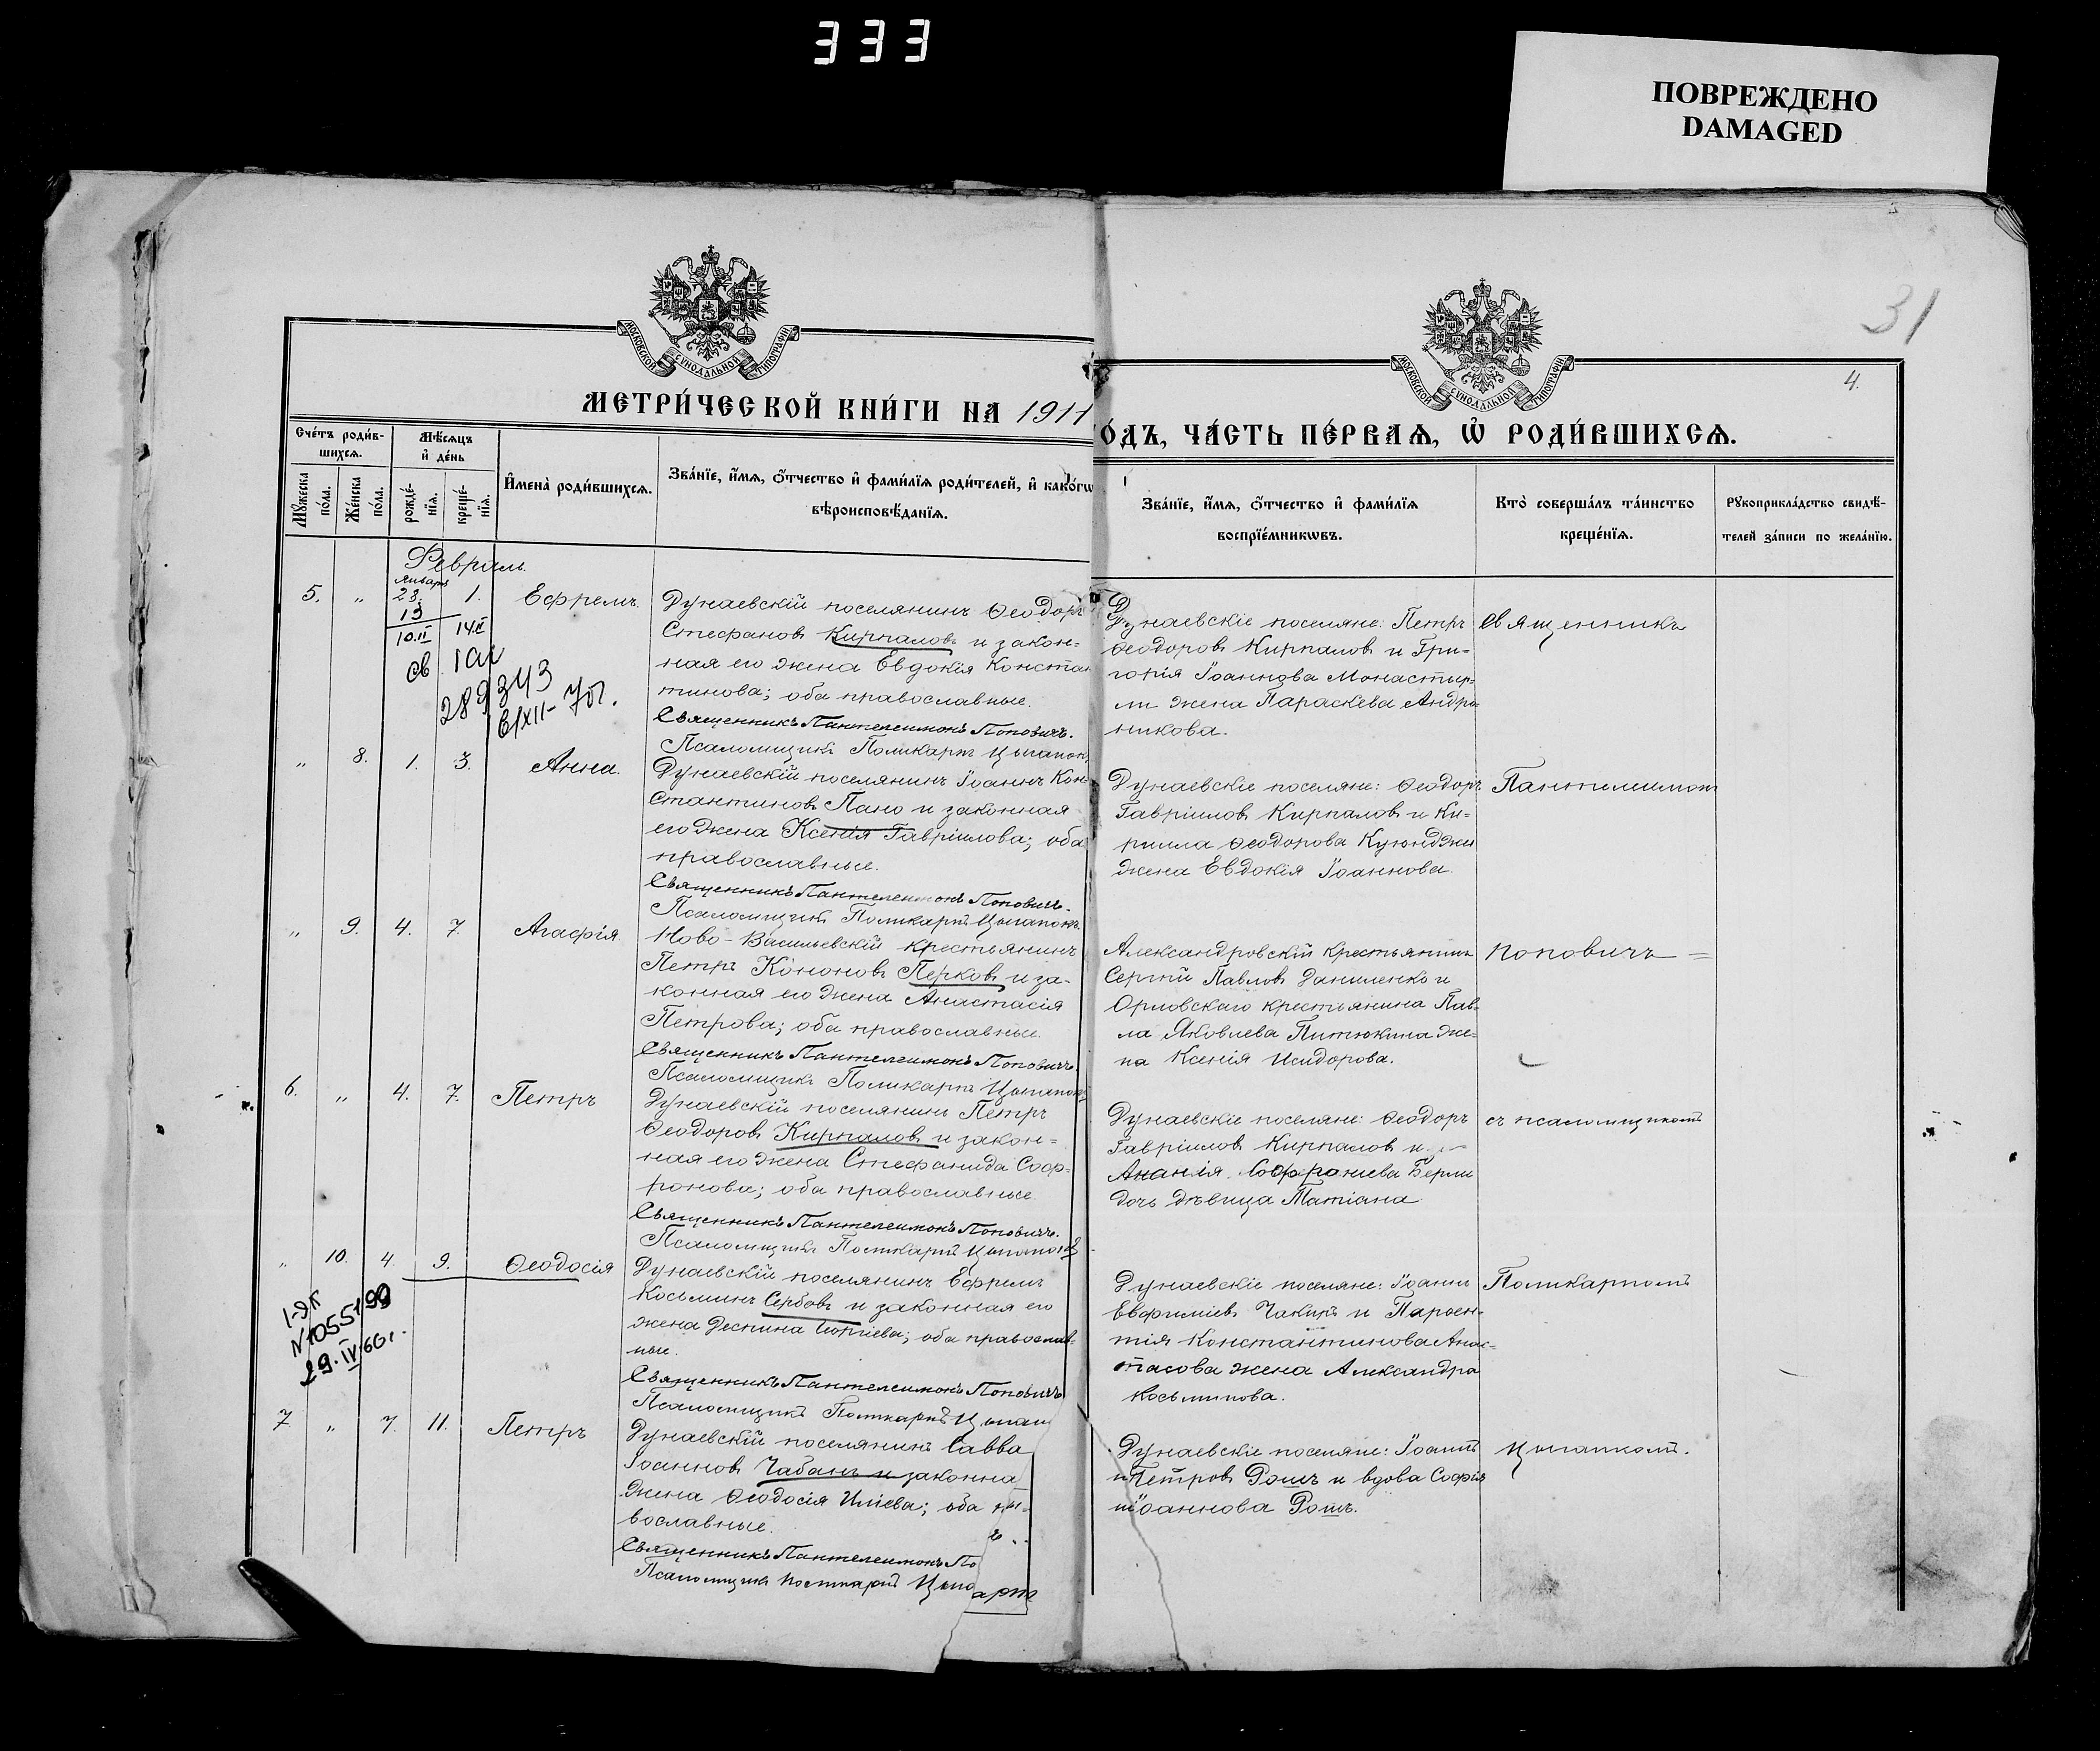 333
ПОВРЕЖДЕНО
DAMAGED
31
4.
МОСКОВСКОЙ СѴНОДАЛЬНОЙ ТИПОГРАФІИ
МОСКОВСКОЙ СѴНОДАЛЬНОЙ ТИПОГРАФІИ
МЕТРИ́ЧЕСКОЙ КНИ́ГИ НА 1911
О́ДЪ, ЧА́СТЬ ПЕ́РВАѦ, Ѽ РОДИ́ВШИХСѦ.
Сче́тъ роди́в-
шихсѧ.
Мѣ́сѧцъ
и҆ де́нь
Мꙋ́жеска
по́ла.
Же́нска
по́ла.
рожде́-
нїѧ.
креще́-
нїѧ.
И҆мена̀ роди́вшихсѧ.
Зва́нїе, и҆́мѧ, о҆́тчество и҆ фами́лїѧ роди́телей, и҆ како́гѡ
вѣроисповѣ́данїѧ.
Зва́нїе, и҆́мѧ, о҆́тчество и҆ фами́лїѧ
воспрїе́мникѡвъ.
Кто̀ соверша́лъ та́инство
креще́нїѧ.
Рꙋкоприкла́дство свидѣ́-
телей за́писи по жела́нїю.
Февраль.
5. „ Январь 23. 1. Ефремъ.
13
10.II 14.II
св 1 аи
289343
6/XII-70г.
Дунаевскій поселянинъ Ѳеодоръ
Стефановъ Кирпаловъ и закон=
ная его жена Евдокія Констан
тинова; оба православные.
Священникъ Пантелеимонъ Поповичъ.
Псаломщикъ Поликарпъ Цыганок
Дунаевскіе поселяне: Петръ
Ѳеодоровъ Кирпаловъ и Гри-
горія Іоаннова Монастыр-
ли жена Параскева Андро
никова.
Священникъ
„ 8. 1. 3. Анна.
Дунаевскій поселянинъ Іоаннъ Кон
стантиновъ Пано и законная
его жена Ксенія Гавріилова; оба
православные.
Священникъ Пантелеимонъ Поповичъ.
Псаломщикъ Поликарпъ Цыганокъ.
Дунаевскіе поселяне: Ѳеодоръ
Гавріиловъ Кирпаловъ и Ки-
рилла Ѳеодорова Куюнджи
жена Евдокія Іоаннова.
Пантелеимон
„ 9. 4. 7. Агафія
Ново-Васильевскій крестьянинъ
Петръ Кононовъ Перковъ и за-
конная его жена Анастасія
Петрова; оба православные.
Священникъ Пантелеимонъ Поповичъ.
Псаломщикъ Поликарпъ Цыганокъ
Александровскій крестьянинъ
Сергій Павловъ Даниленко и
Орловскаго крестьянина Пав-
ла Яковлева Питюкина же-
на Ксенія Исидорова.
Поповичъ =
6. „ 4. 7. Петръ
Дунаевскій поселянинъ Петръ
Ѳеодоровъ Кирпаловъ и закон=
ная его жена Стефанида Соф-
ронова; оба православные.
Священникъ Пантелеимонъ Поповичъ.
Псаломщикъ Поликарпъ Цыганокъ
Дунаевскіе поселяне: Ѳеодоръ
Гавріиловъ Кирпаловъ и
Ананія Софрониева Берли
дочь дѣвица Татіана
съ псаломщикомъ
„ 10. 4. 9. Ѳеодосія
I-ЭК
N1055199
29.IV.66г.
Дунаевскій поселянинъ Ефремъ
Косьминъ Сербовъ и законная его
жена Деспина Георгіева; оба православ-
ные.
Священникъ Пантелеимонъ Поповичъ
Псаломщикъ Поликарпъ Цыган
Дунаевскіе поселяне: Іоаннъ
Евфиміевъ Чакиръ и Парѳен-
тія Константинова Анас-
тасова жена Александра
Косьминова.
Поликарпомъ
7. „ 7. 11. Петръ
Дунаевскій поселянинъ Савва
Іоанновъ Чабанъ и законна
жена Ѳеодосія Иліева; оба пра-
вославные.
Священникъ Пантелеимонъ По
Псаломщикъ Поликарпъ Цыга
Дунаевскіе поселяне: Іоаннъ
Петровъ Рошъ и вдова Софія
Іоаннова Рошъ.
Цыганкомъ.